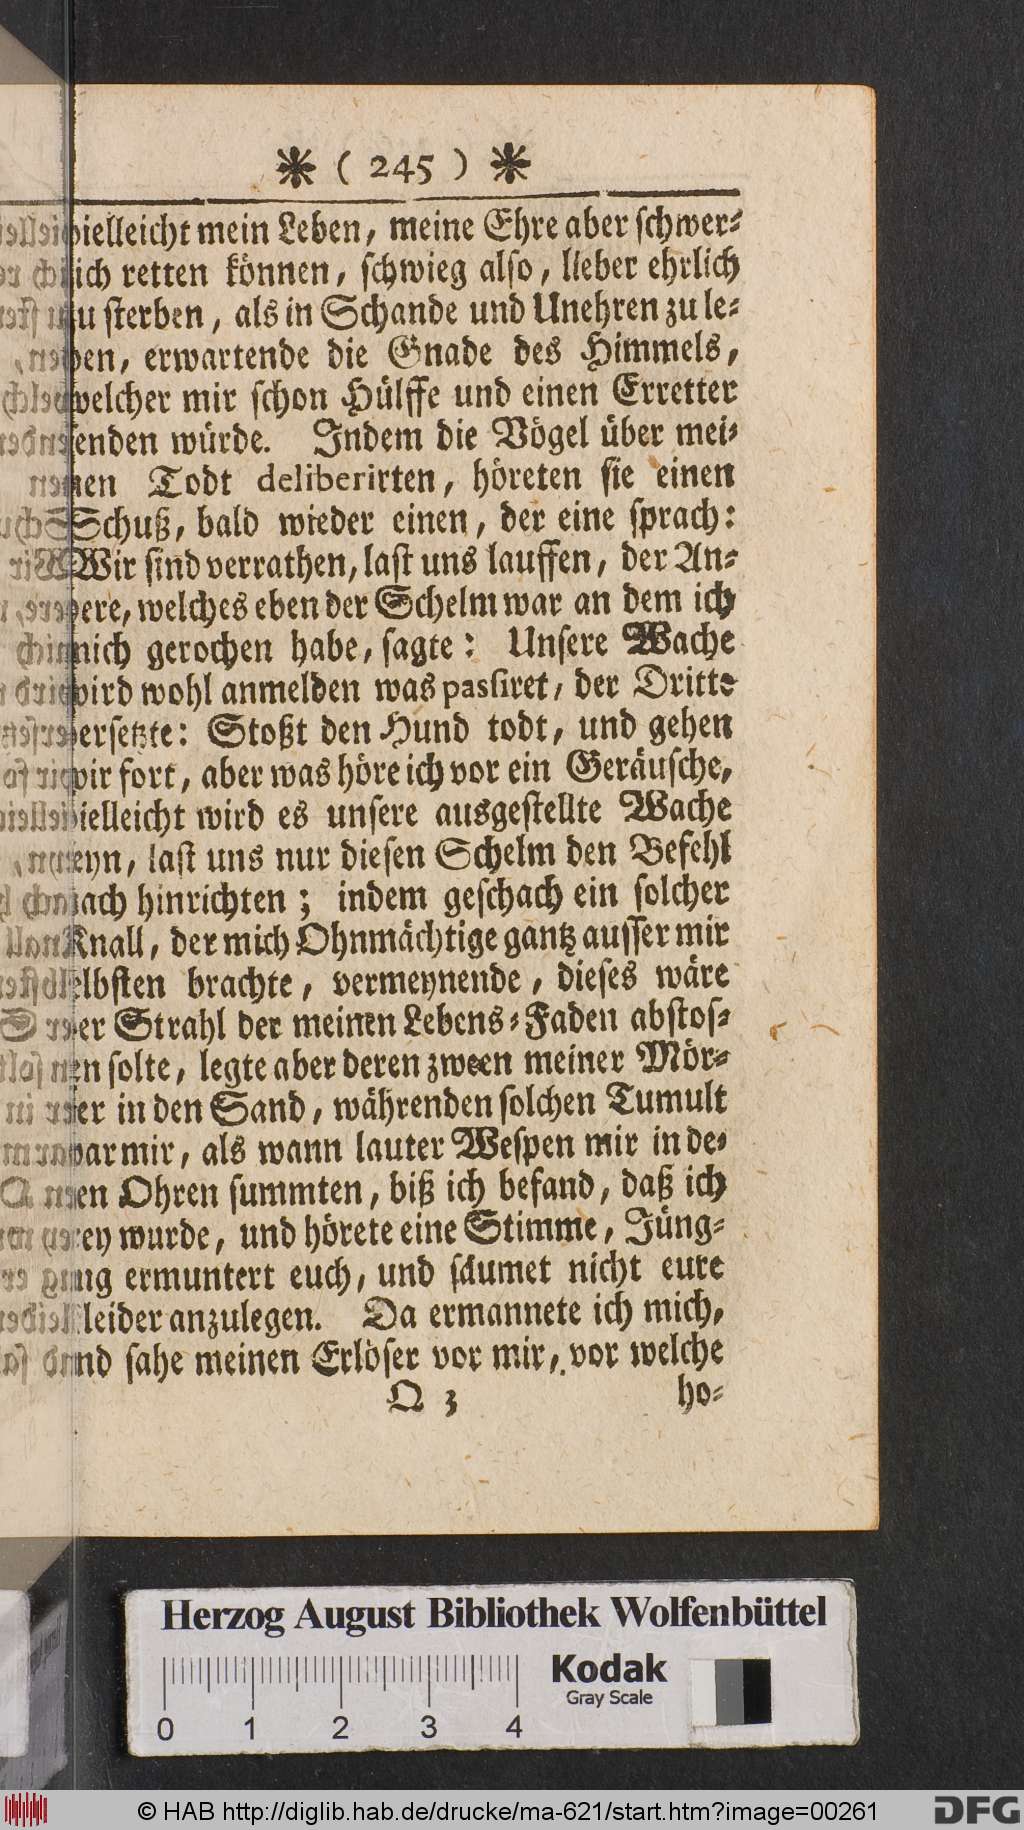 * ( 245 ) *
vielleicht mein Leben, meine Ehre aber schwer-
lich retten können, schwieg also, lieber ehrlich
zu sterben, als in Schande und Unehren zu le-
ben, erwartende die Gnade des Himmels,
welcher mir schon Hülffe und einen Erretter
senden würde. Indem die Vögel über mei-
nen Todt deliberirten, höreten sie einen
Schuß, bald wieder einen, der eine sprach:
Wir sind verrathen, last uns lauffen, der An-
dere, welches eben der Schelm war an dem ich
mich gerochen habe, sagte: Unsere Wache
wird wohl anmelden was passiret, der Dritte
versetzte: Stoßt den Hund todt, und gehen
wir fort, aber was höre ich vor ein Geräusche,
vielleicht wird es unsere ausgestellte Wache
seyn, last uns nur diesen Schelm den Befehl
nach hinrichten; indem geschach ein solcher
Knall, der mich Ohnmächtige gantz ausser mir
selbsten brachte, vermeynende, dieses wäre
der Strahl der meinen Lebens-Faden abstos-
sen solte, legte aber deren zween meiner Mör-
der in den Sand, währenden solchen Tumult
war mir, als wann lauter Wespen mir in de-
nen Ohren summten, biß ich befand, daß ich
frey wurde, und hörete eine Stimme, Jüng-
ling ermuntert euch, und säumet nicht eure
Kleider anzulegen. Da ermannete ich mich,
und sahe meinen Erlöser vor mir, vor welche
Q 3 ho-
Herzog August Bibliothek Wolfenbüttel
Kodak
Gray Scale
0 1 2 3 4
© HAB http://diglib.hab.de/drucke/ma-621/start.htm?image=00261
DFG